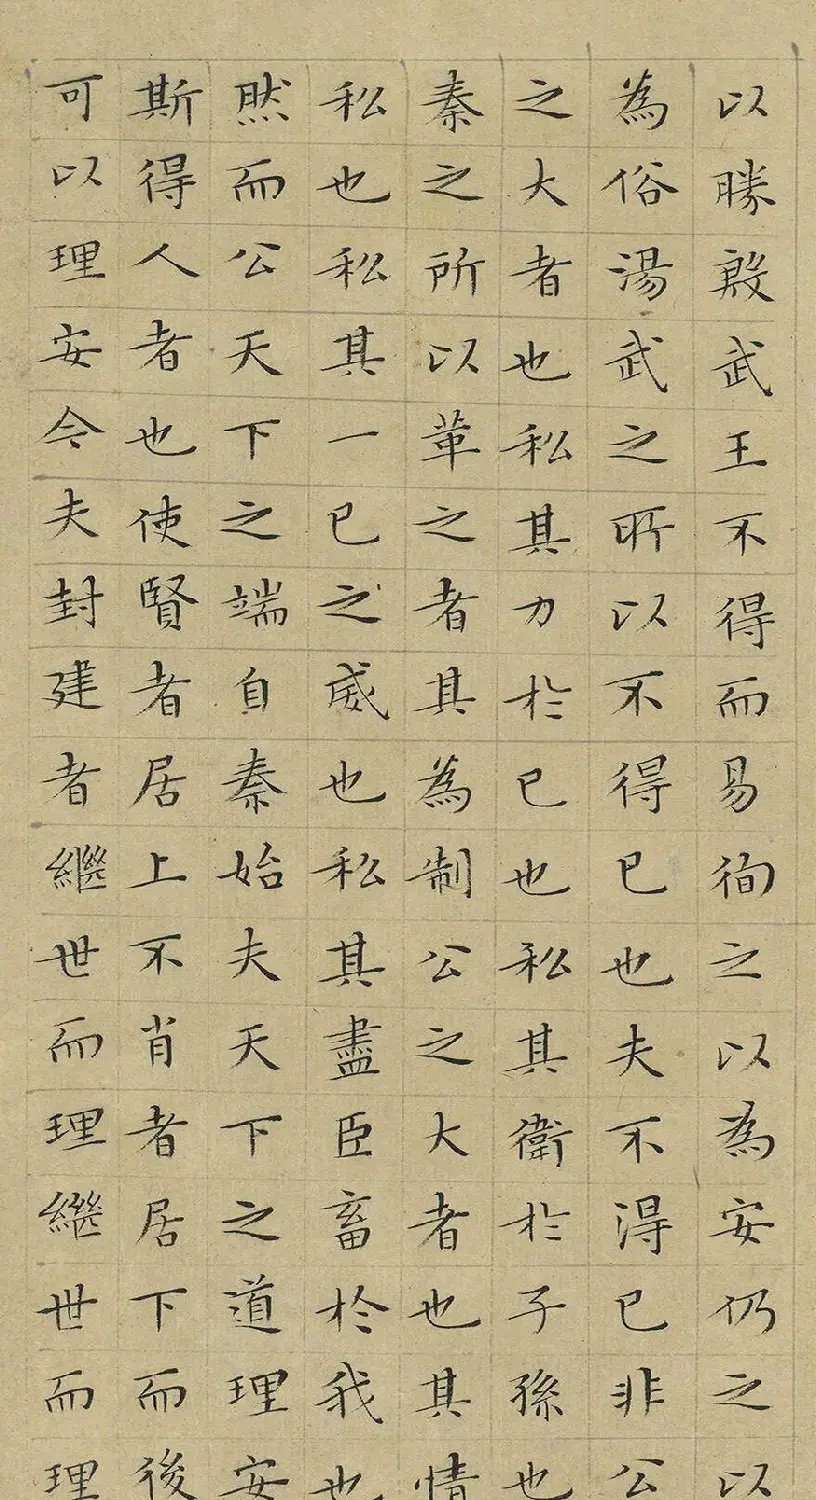 以勝殷武王不得而易徇之以為安仍之以
為俗湯武之所以不得已也夫不得已非公
之大者也私其力於已也私其衛於子孫也
秦之所以革之者其為制公之大者也其情
私也私其一已之威也私其盡臣畜於我也
然而公天下之端自秦始夫天下之道理安
斯得人者也使賢者居上不肖者居下而後
可以理安今夫封建者繼世而理繼世而理